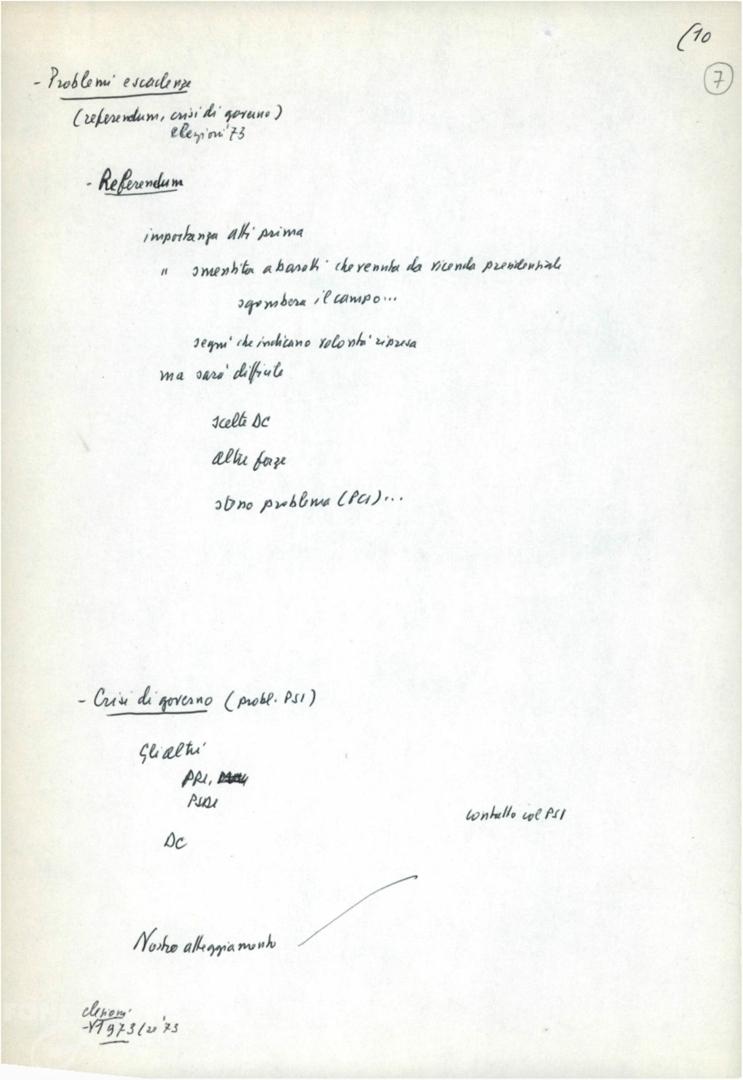 (10
7
- Problemi e scadenze
(referendum, crisi di governo)
elezioni '73
- Referendum
importanza atti prima
" smentita a baratti che venuta da vicenda presidenziale
sgombera il campo...
segni che indicano volontà ripresa
ma sarà difficile
scelte DC
altre forze
problema (PCI)...
- Crisi di governo (probl. PSI)
Gli altri
PRI,
PSDI
contatto col PSI
DC
Nostro atteggiamento
elezioni
1973 '73